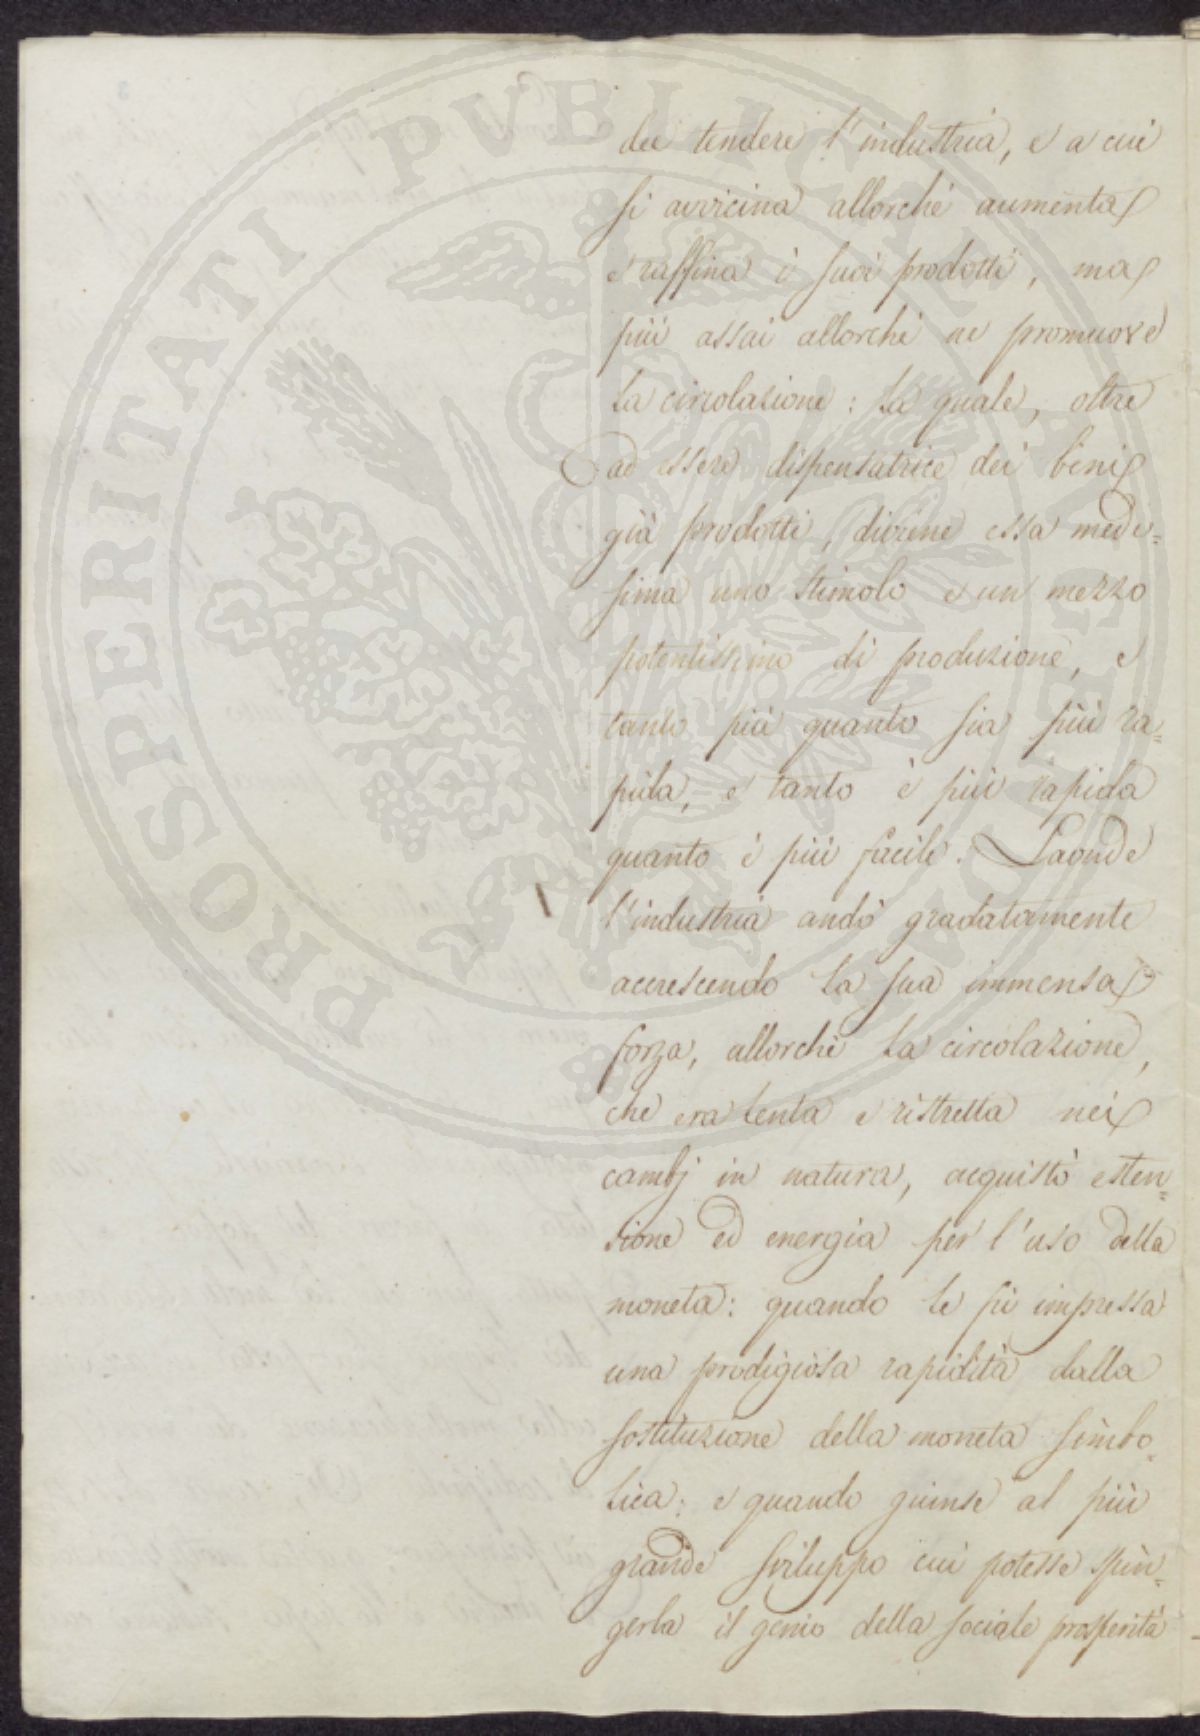 PROSPERITATI PUBLICAE AUGENDAE
dee tendere l'industria, e a cui
si avvicina allorché aumenta
e raffina i suoi prodotti, ma
più assai allorché ne promuove
la circolazione: la quale, oltre
ad essere dispensatrice dei beni
già prodotti, diviene essa mede=
sima uno stimolo e un mezzo
potentissimo di produzione, e
tanto più quanto sia più ra=
pida, e tanto è più rapida
quanto è più facile. Laonde
l'industria andò gradatamente
accrescendo la sua immensa
forza, allorché la circolazione,
che era lenta e ristretta nei
cambj in natura, acquistò esten=
sione ed energia per l'uso della
moneta: quando le fù impressa
una prodigiosa rapidità dalla
sostituzione della moneta simbo=
lica: e quando giunse al più
grande sviluppo cui potesse spin=
gerla il genio della sociale prosperità